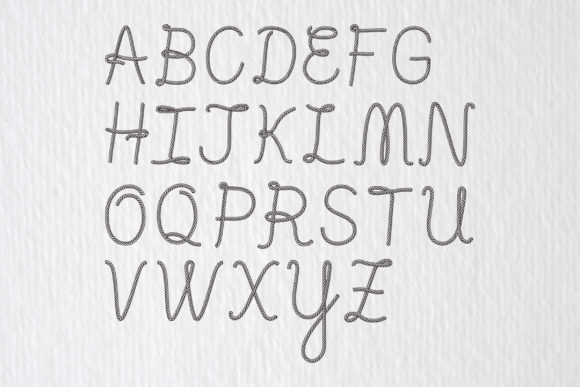 ABCDEFG
HIJKLMN
OQPRSTU
VWXYZ